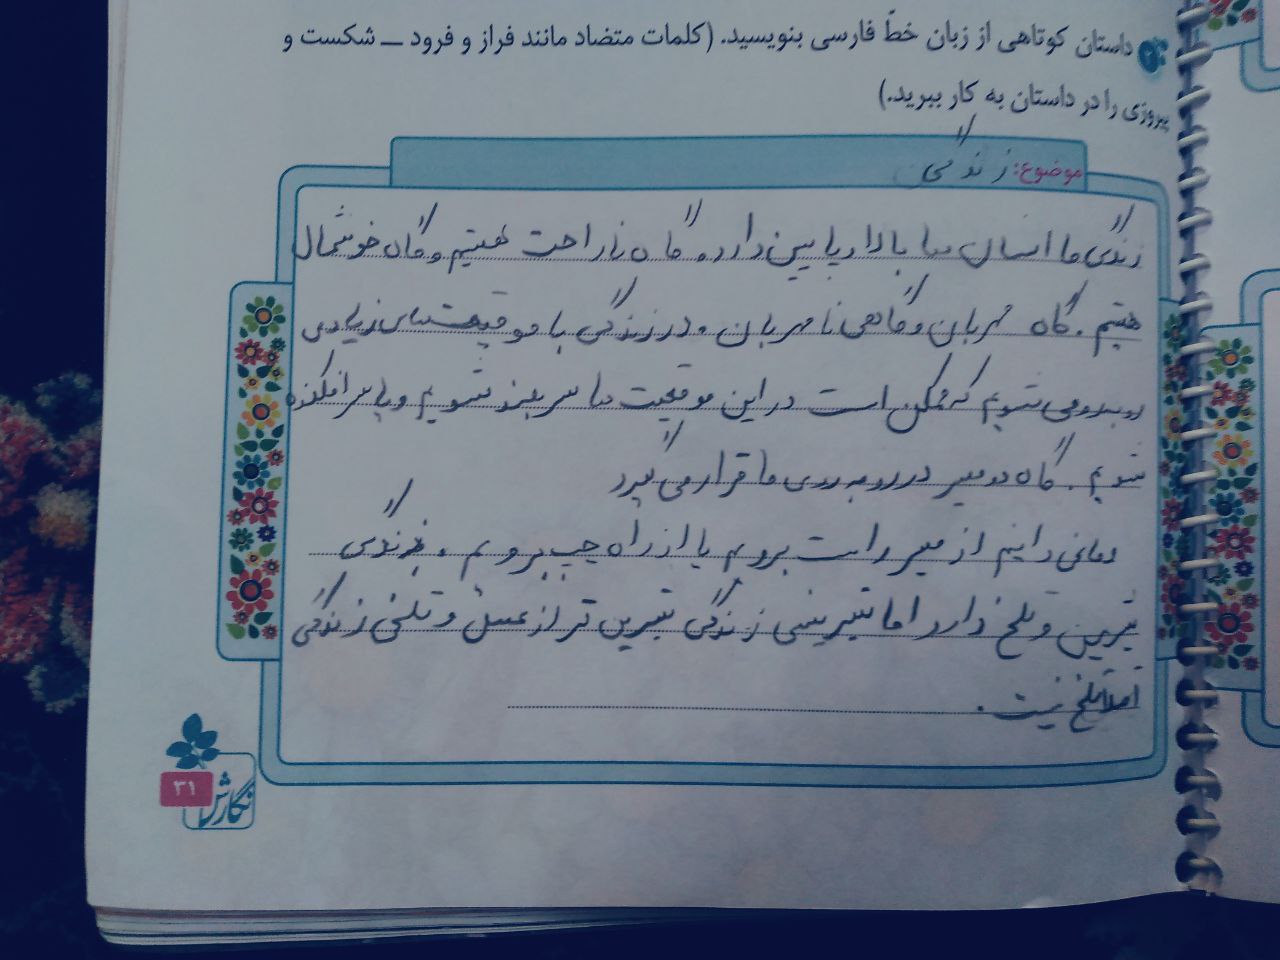 داستان کوتاهی از زبان خطّ فارسی بنویسید. (کلمات متضاد مانند فراز و فرود ــ شکست و
پیروزی را در داستان به کار ببرید.)
موضوع: زندگی
زندگی ما انسان ها بالا و پایین دارد. گاه ناراحت هستیم و گاه خوشحال
هستیم. گاه مهربان و گاهی نامهربان. در زندگی با موقعیت‌های زیادی
روبه‌رو می شویم که ممکن است در این موقعیت ها سربلند شویم و یا سرافکنده
شویم. گاه دو مسیر در روبه‌روی ما قرار می گیرد
و ما نمی دانیم از مسیر راست برویم یا از راه چپ برویم. زندگی
شیرین و تلخ دارد اما شیرینی زندگی شیرین تر از عسل و تلخی زندگی
اصلا تلخ نیست.
نگارش
۳۱